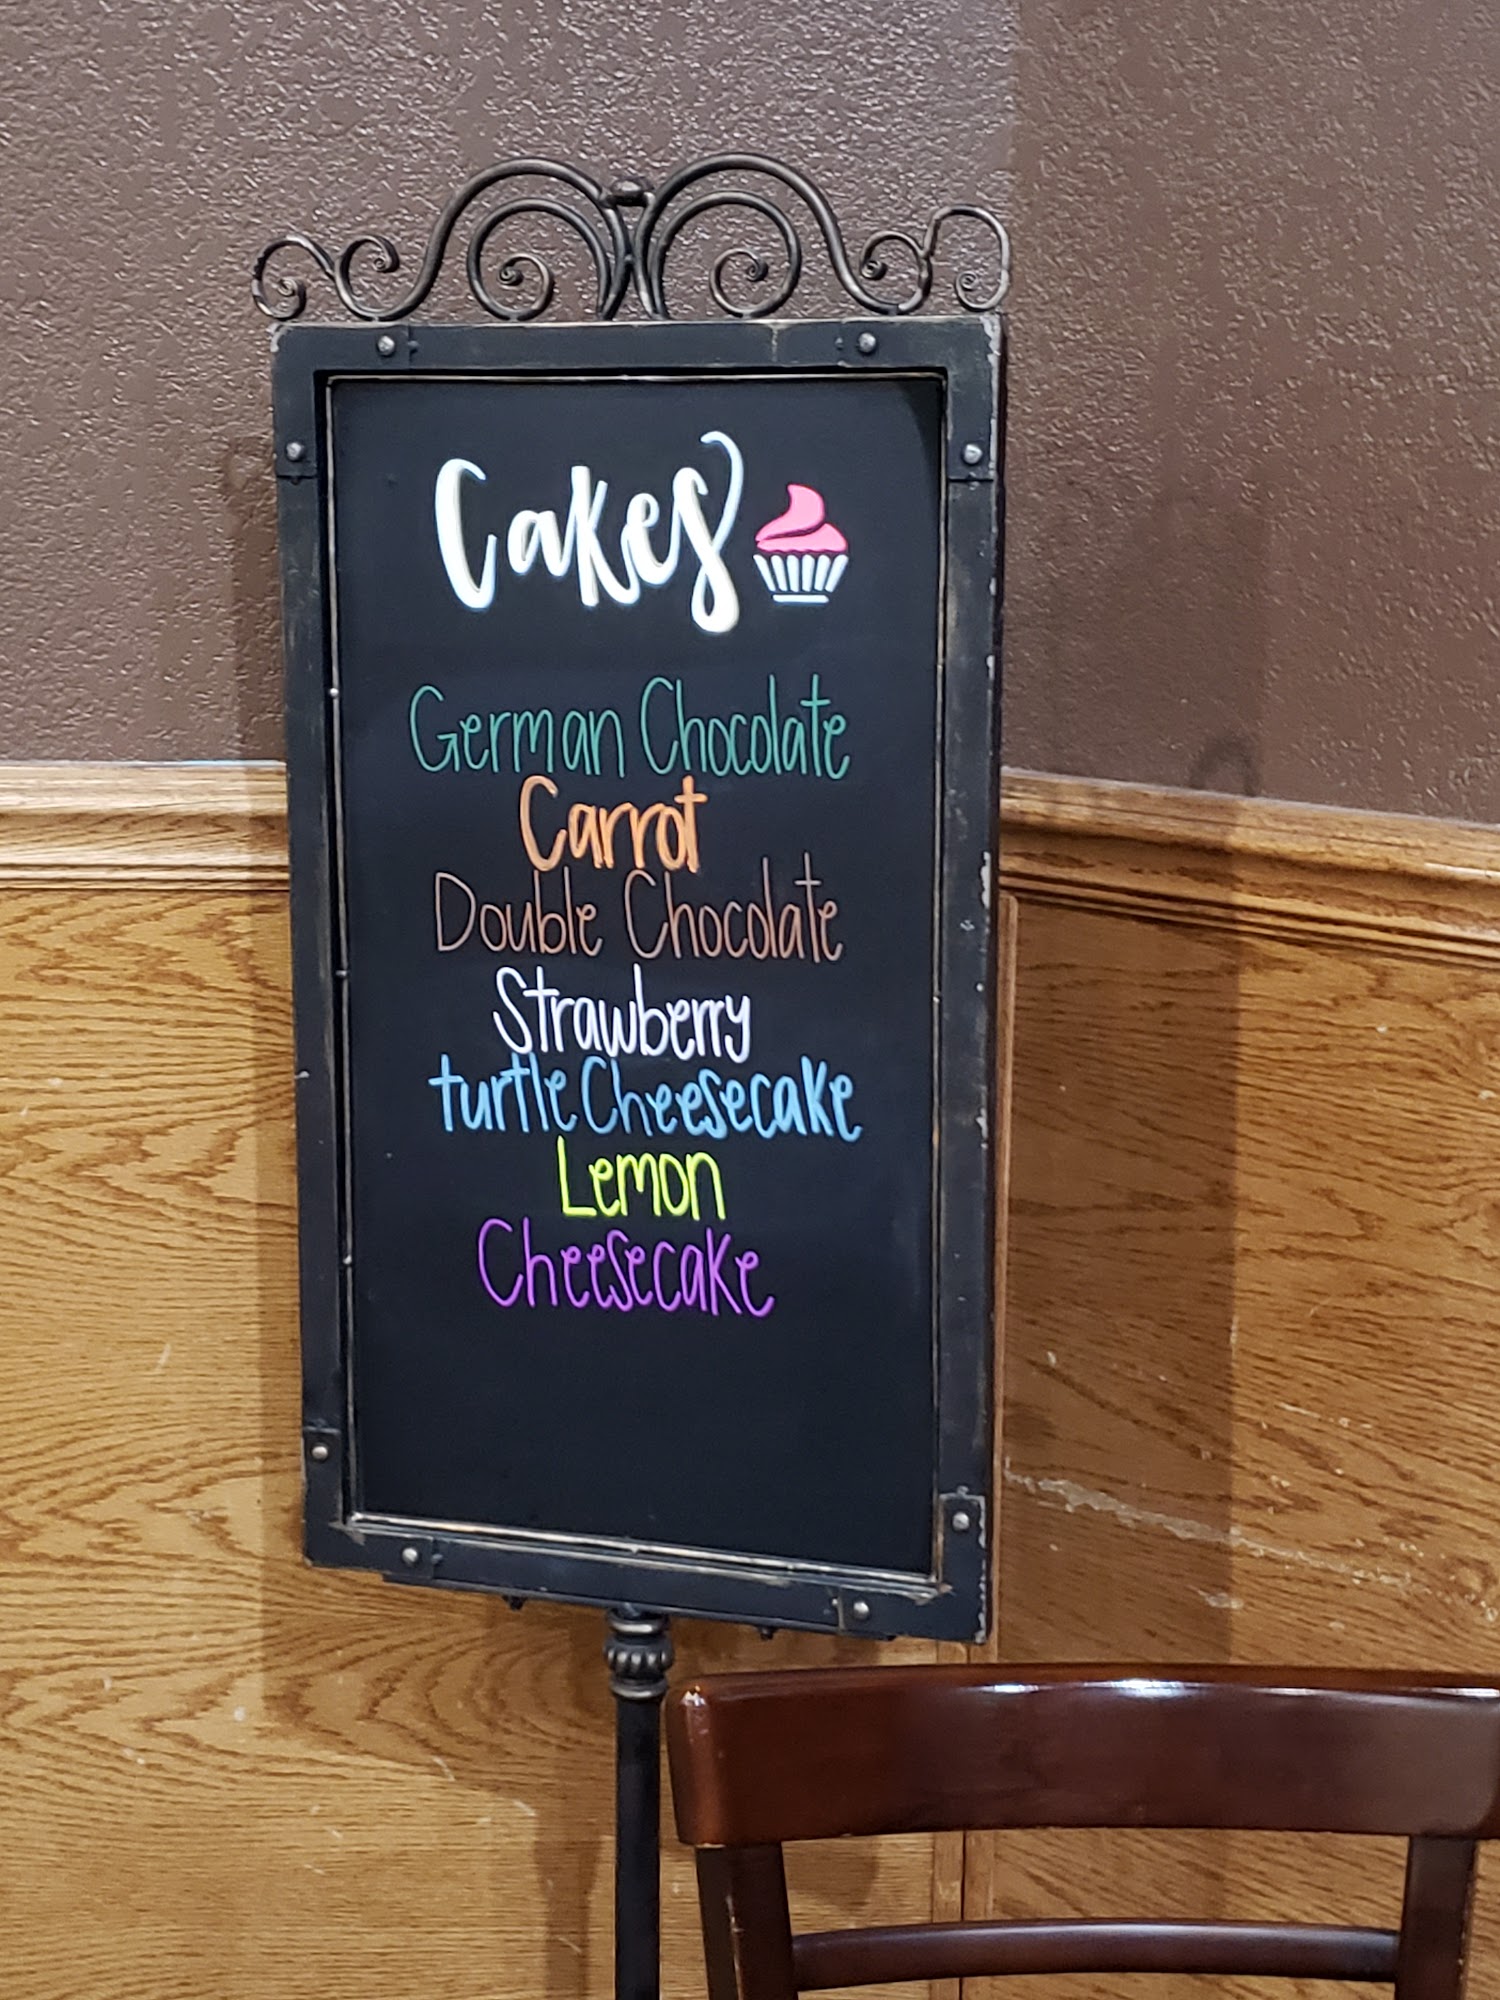 Cakes
German Chocolate
Carrot
Double Chocolate
Strawberry
turtle Cheesecake
Lemon
Cheesecake